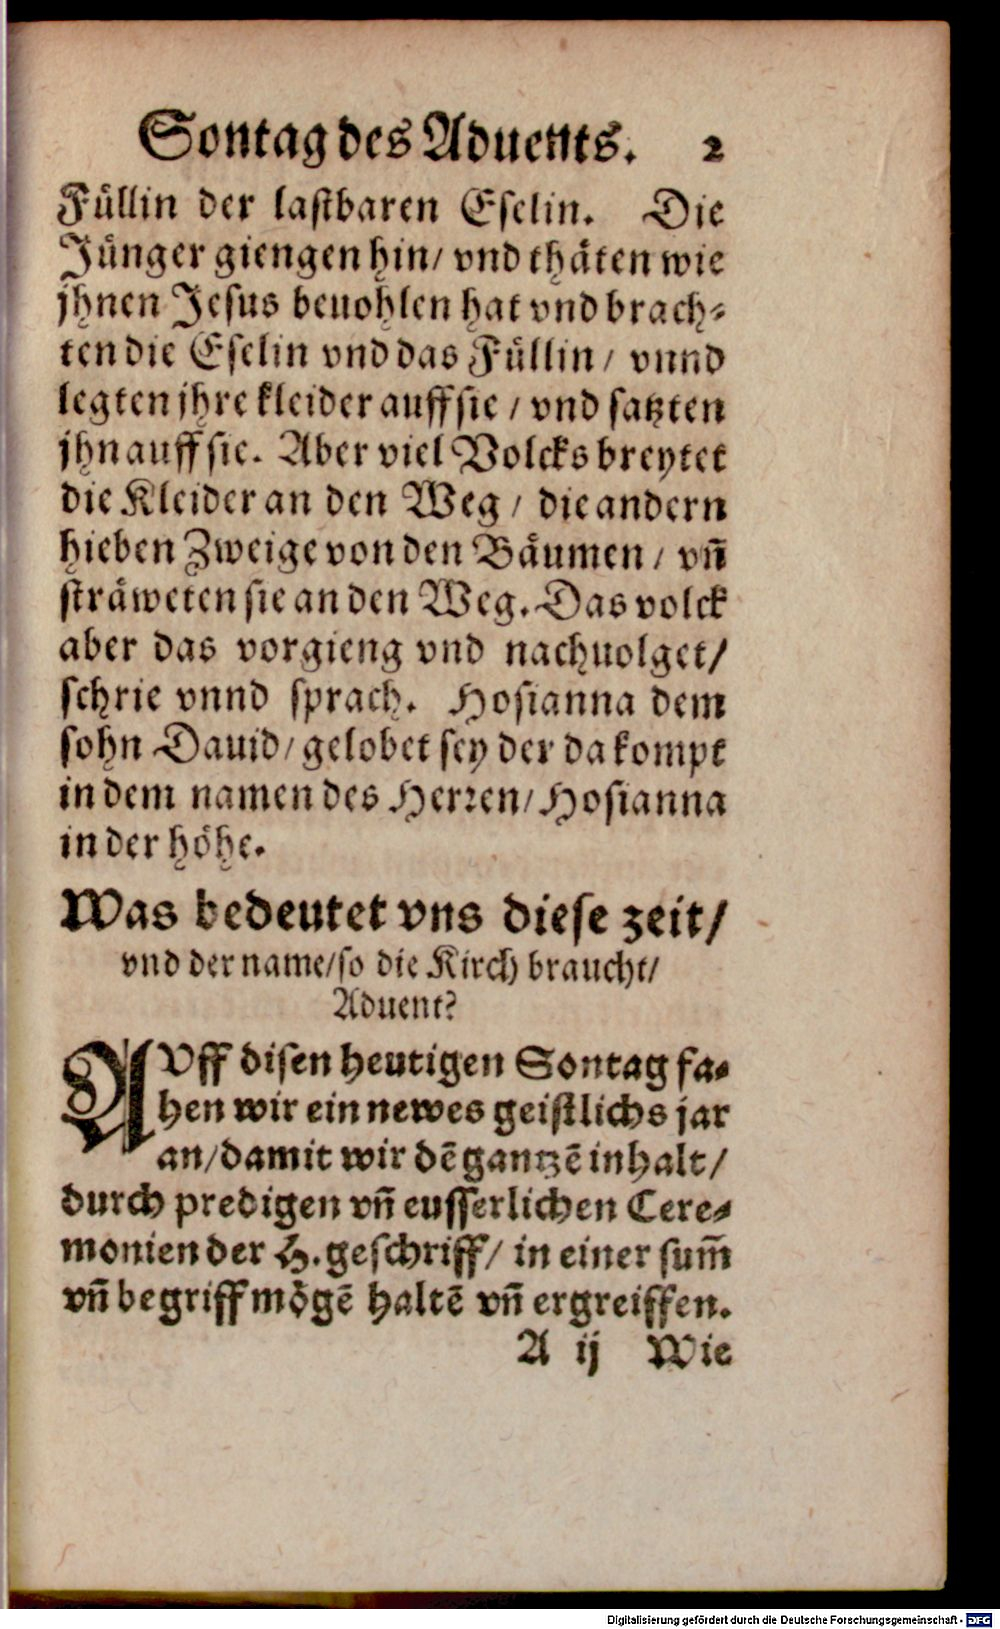 Sontag des Aduents. 2
Füllin der lastbaren Eselin. Die
Jünger giengen hin/ vnd thäten wie
jhnen Jesus beuohlen hat vnd brach-
ten die Eselin vnd das Füllin/ vnnd
legten jhre kleider auff sie/ vnd satzten
jhn auff sie. Aber viel Volcks breytet
die Kleider an den Weg/ die andern
hieben Zweige von den Bäumen/ vñ
sträweten sie an den Weg. Das volck
aber das vorgieng vnd nachuolget/
schrie vnnd sprach. Hosianna dem
sohn Dauid/ gelobet sey der da kompt
in dem namen des Herren/ Hosianna
in der höhe.
Was bedeutet vns diese zeit/
vnd der name/ so die Kirch braucht/
Aduent?
AVff disen heutigen Sontag fa-
hen wir ein newes geistlichs jar
an/ damit wir dē gantzē inhalt/
durch predigen vñ eusserlichen Cere-
monien der H. geschriff/ in einer sum̄
vñ begriff mögē haltē vñ ergreiffen.
A ij Wie
Digitalisierung gefördert durch die Deutsche Forschungsgemeinschaft - DFG